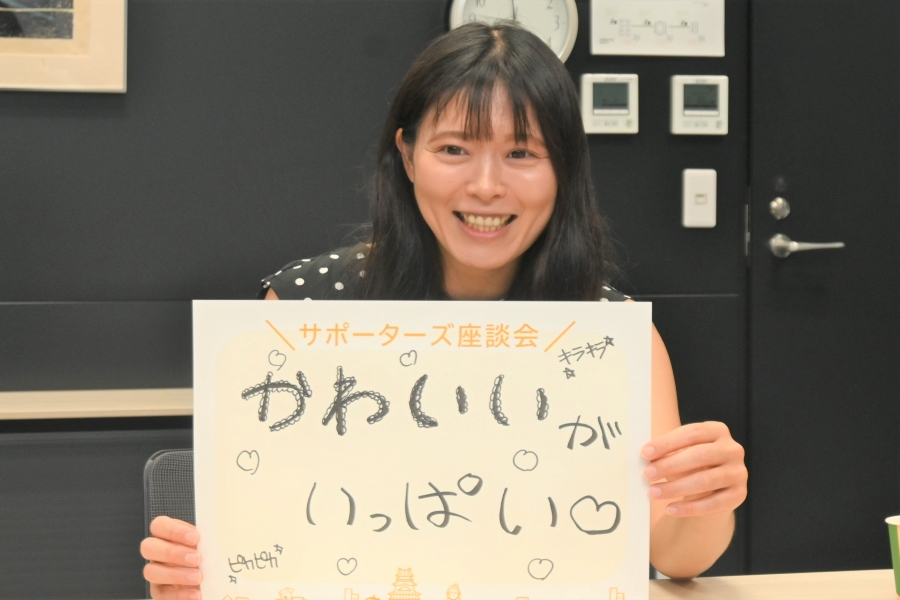 ＼サポーターズ座談会／
キラキラ
かわいいが
いっぱい♡
ピカピカ